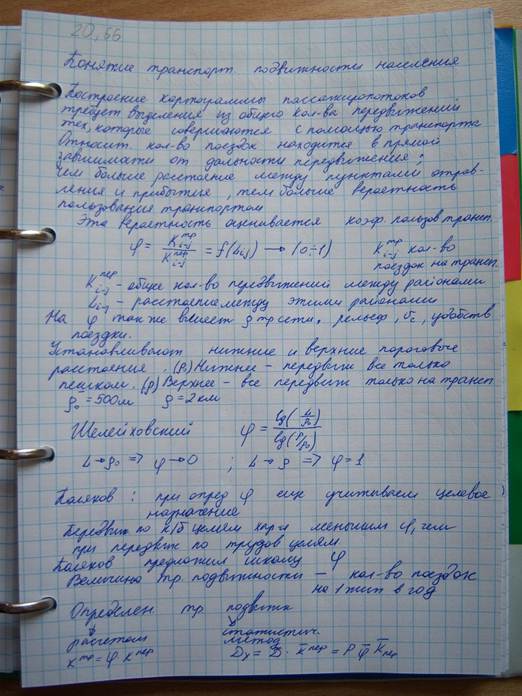 20,66
Понятие транспорт. подвижности населения
Построение картограммы пассажиропотоков
требует выделения из общего кол-ва передвижений
тех, которые совершаются с помощью транспорта
Относит. кол-во поездок находится в прямой
зависимости от дальности передвижения:
чем больше расстояние между пунктами отправ-
ления и прибытия, тем больше вероятность
пользования транспортом
Эта вероятность оценивается коэф. пользов трансп.
φ = K тр i-j / K пер i-j = f(Li-j) → (0÷1) K тр i-j кол-во
поездок на трансп.
K пер i-j - общее кол-во передвижений между районами
Li-j - расстояние между этими районами
На φ так же влияет ρ тр сети, рельеф, υс, удобств
поездки.
Устанавливают нижние и верхние пороговые
расстояния. (ρ0) Нижнее - передвиж все только
пешком. (ρ) Верхнее - все передвиж только на трансп.
ρ0 = 500м ρ = 2км
Шелейховский φ = lg(L/ρ0) / lg(ρ/ρ0)
L→ρ0 => φ→0 ; L→ρ => φ=1
Поляков: при опред φ еще учитываем целевое
назначение
Передвиж по к/б целям хар-я меньшим φ, чем
при передвиж по трудов целям
Поляков предложил шкалу φ
Величина тр подвижности - кол-во поездок
на 1 жит в год
Определен тр подвижн
расчетом статистич.
метод
K тр = φ · K пер Dу = D · K пер = P φ K пер